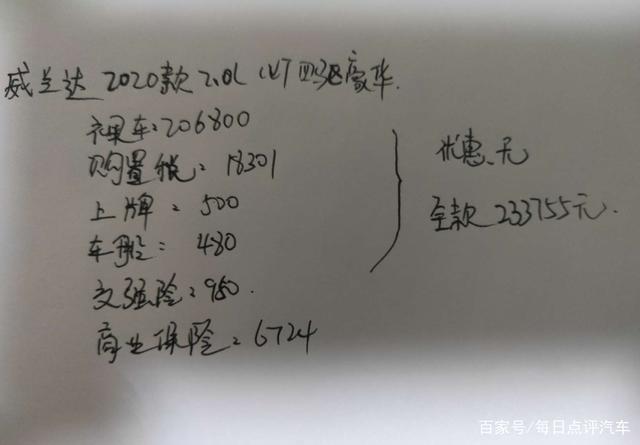 威兰达 2020款 2.0L CVT 四驱豪华.
裸车:206800
购置税:18301
上牌:500
车船:480
交强险:950.
商业保险:6724
优惠:无
全款 233755元.
百家号/每日点评汽车